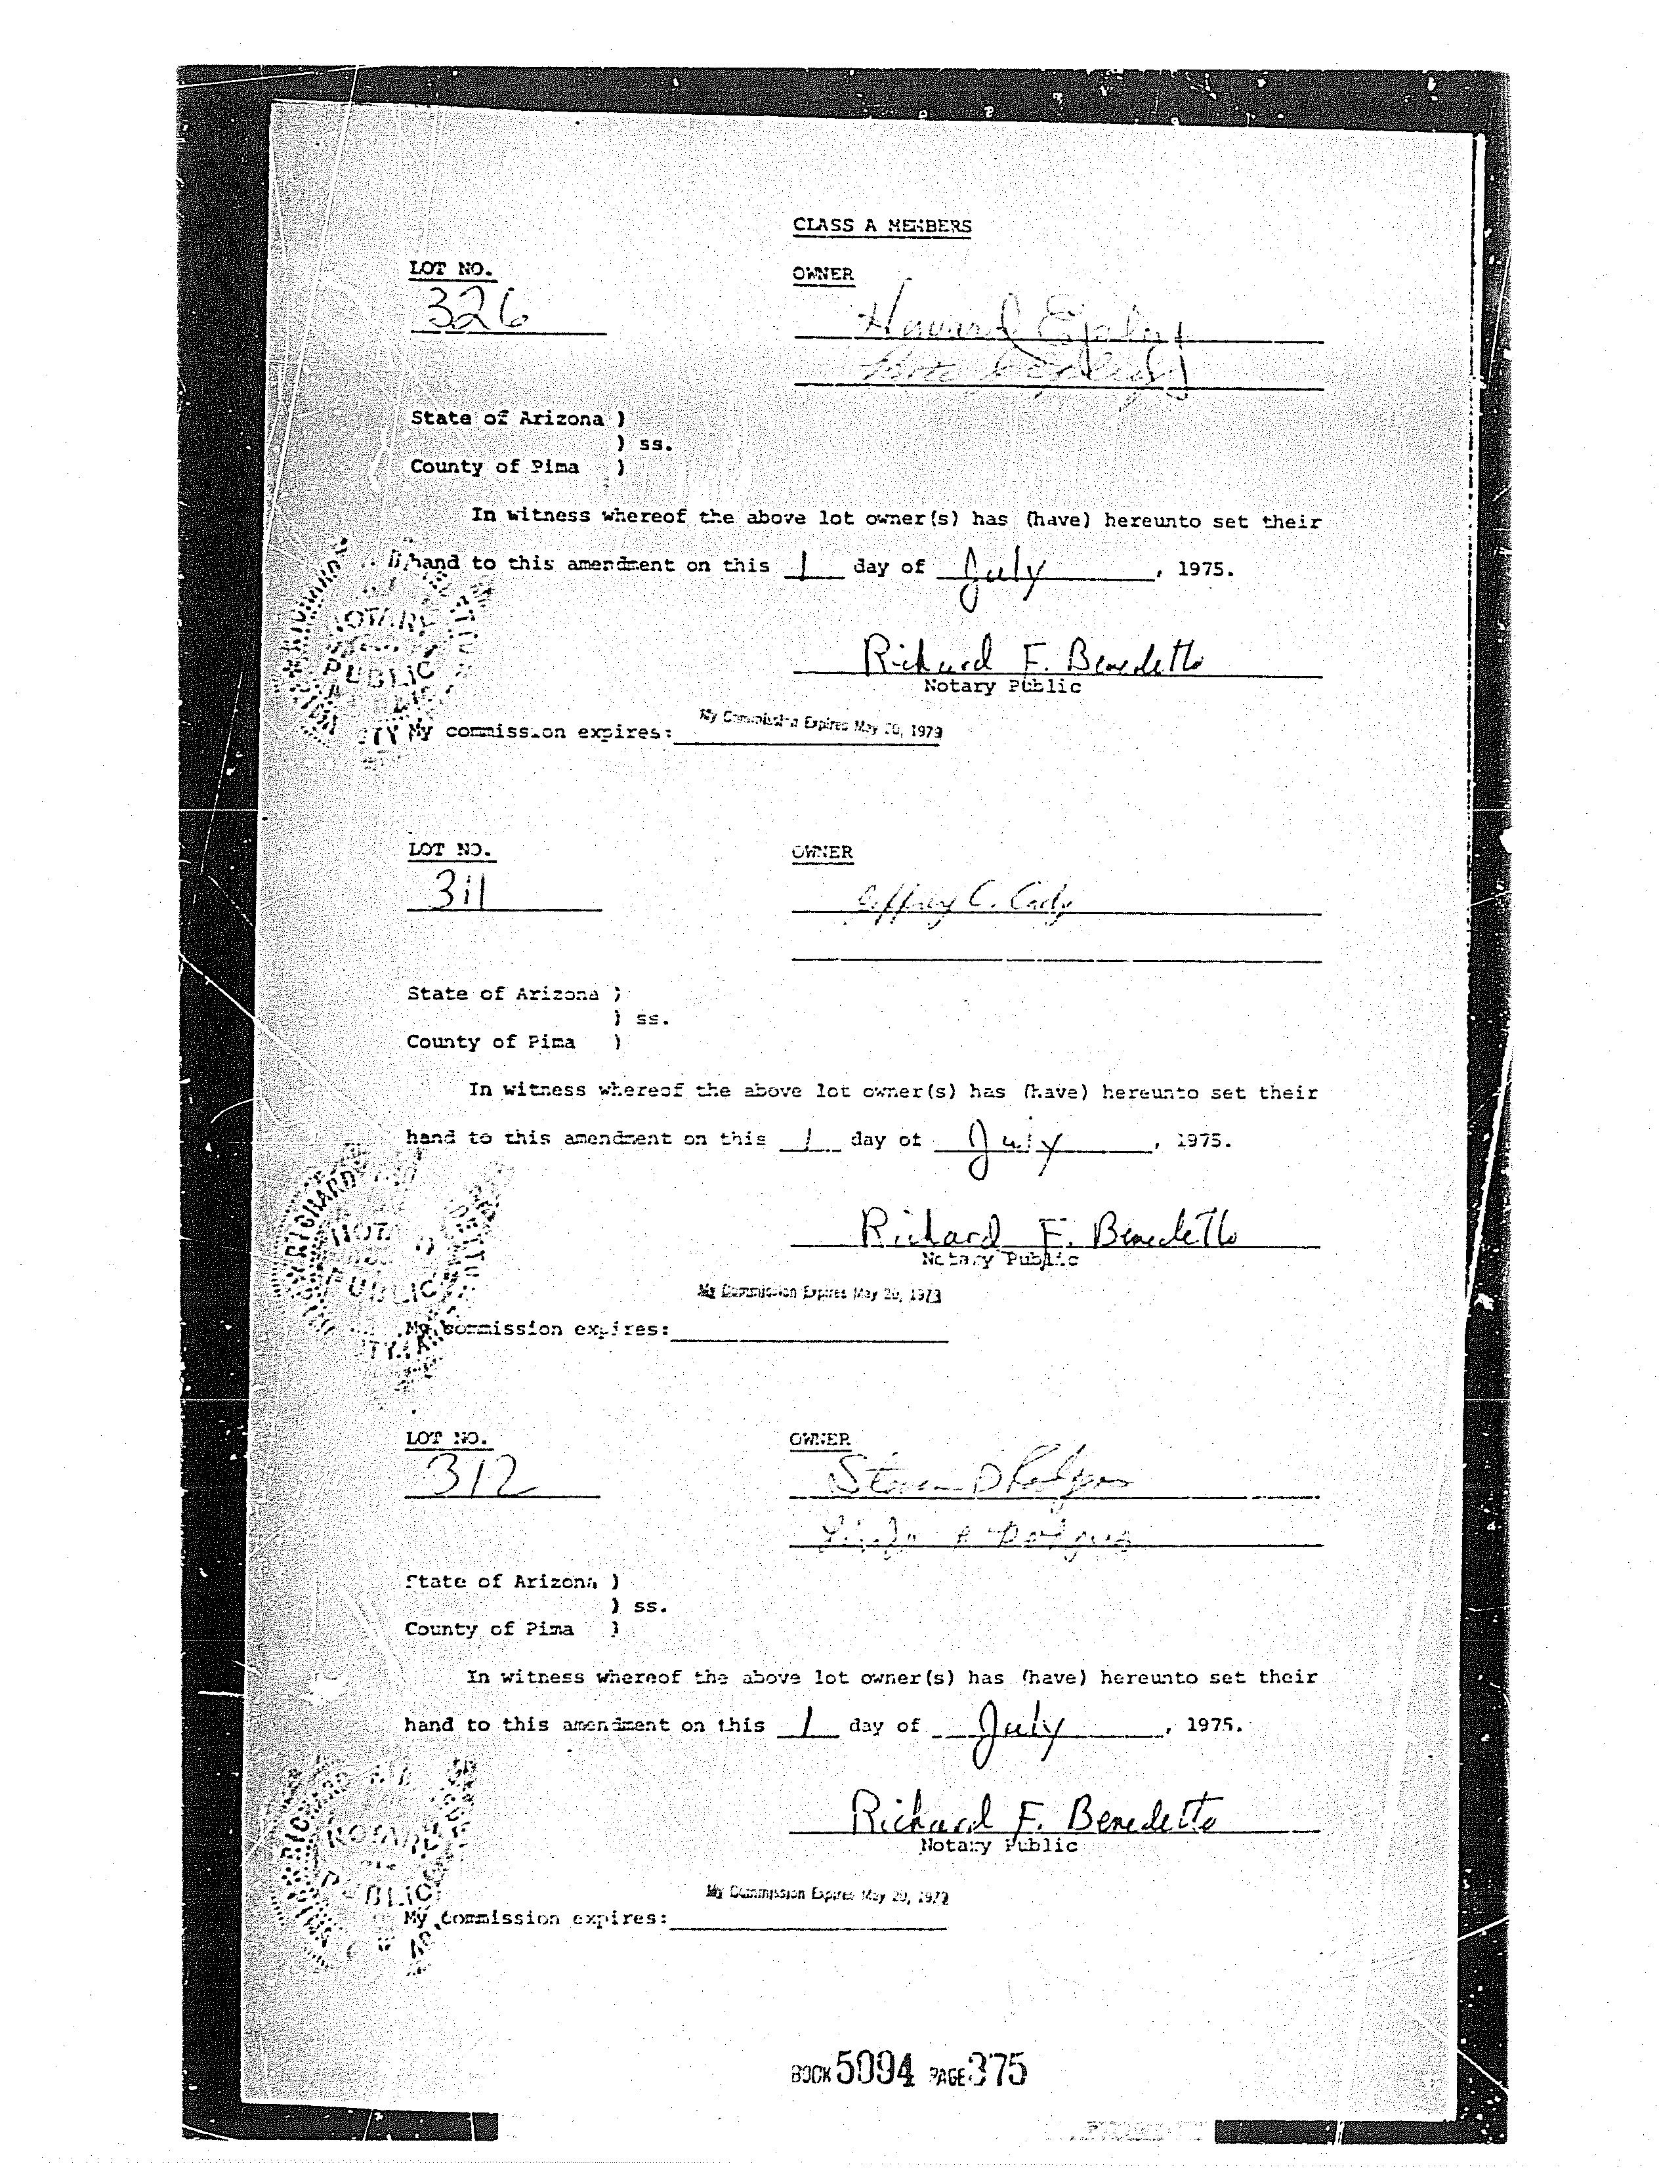 CLASS A MEMBERS
LOT NO. OWNER
326 Howard
State of Arizona )
) ss.
County of Pima )
In witness whereof the above lot owner(s) has (have) hereunto set their
hand to this amendment on this 1 day of July, 1975.
Richard F. Benedetto
Notary Public
My Commission Expires May 20, 1979
My commission expires:
NOTARY
PUBLIC
LOT NO. OWNER
311 Jeffrey C. Cady
State of Arizona )
) ss.
County of Pima )
In witness whereof the above lot owner(s) has (have) hereunto set their
hand to this amendment on this 1 day of July, 1975.
RICHARD
Richard F. Benedetto
Notary Public
PUBLIC
My Commission Expires May 20,
My commission expires:
LOT NO. OWNER
312 Steven D
State of Arizona )
) ss.
County of Pima )
In witness whereof the above lot owner(s) has (have) hereunto set their
hand to this amendment on this 1 day of July, 1975.
Richard F. Benedetto
NOTARY
Notary Public
PUBLIC
My Commission Expires May 20,
My commission expires:
BOOK 5094 PAGE 375